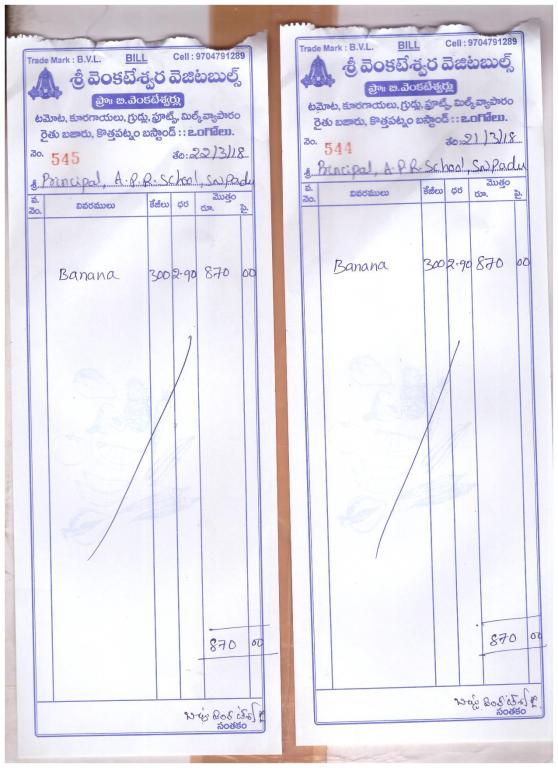 Trade Mark : B.V.L. BILL Cell : 9704791289
శ్రీ వెంకటేశ్వర వెజిటబుల్స్
ప్రొః బి.వెంకటేశ్వర్లు
టమోట, కూరగాయలు, గ్రుడ్లు, ఫ్రూట్స్, మిల్క్ వ్యాపారం
రైతు బజారు, కొత్తపట్నం బస్టాండ్ : : ఒంగోలు.
నెం. 545 తేది: 22/3/18
శ్రీ Principal, A.P.R. School, S.N.Padu
వ. నెం. వివరములు కేజీలు ధర మొత్తం రూ. పై.
Banana 300 2.90 870 00
870 00
సంతకం
Trade Mark : B.V.L. BILL Cell : 9704791289
శ్రీ వెంకటేశ్వర వెజిటబుల్స్
ప్రొః బి.వెంకటేశ్వర్లు
టమోట, కూరగాయలు, గ్రుడ్లు, ఫ్రూట్స్, మిల్క్ వ్యాపారం
రైతు బజారు, కొత్తపట్నం బస్టాండ్ : : ఒంగోలు.
నెం. 544 తేది: 21/3/18
శ్రీ Principal, A.P.R. School, S.N.Padu
వ. నెం. వివరములు కేజీలు ధర మొత్తం రూ. పై.
Banana 300 2.90 870 00
870 00
సంతకం